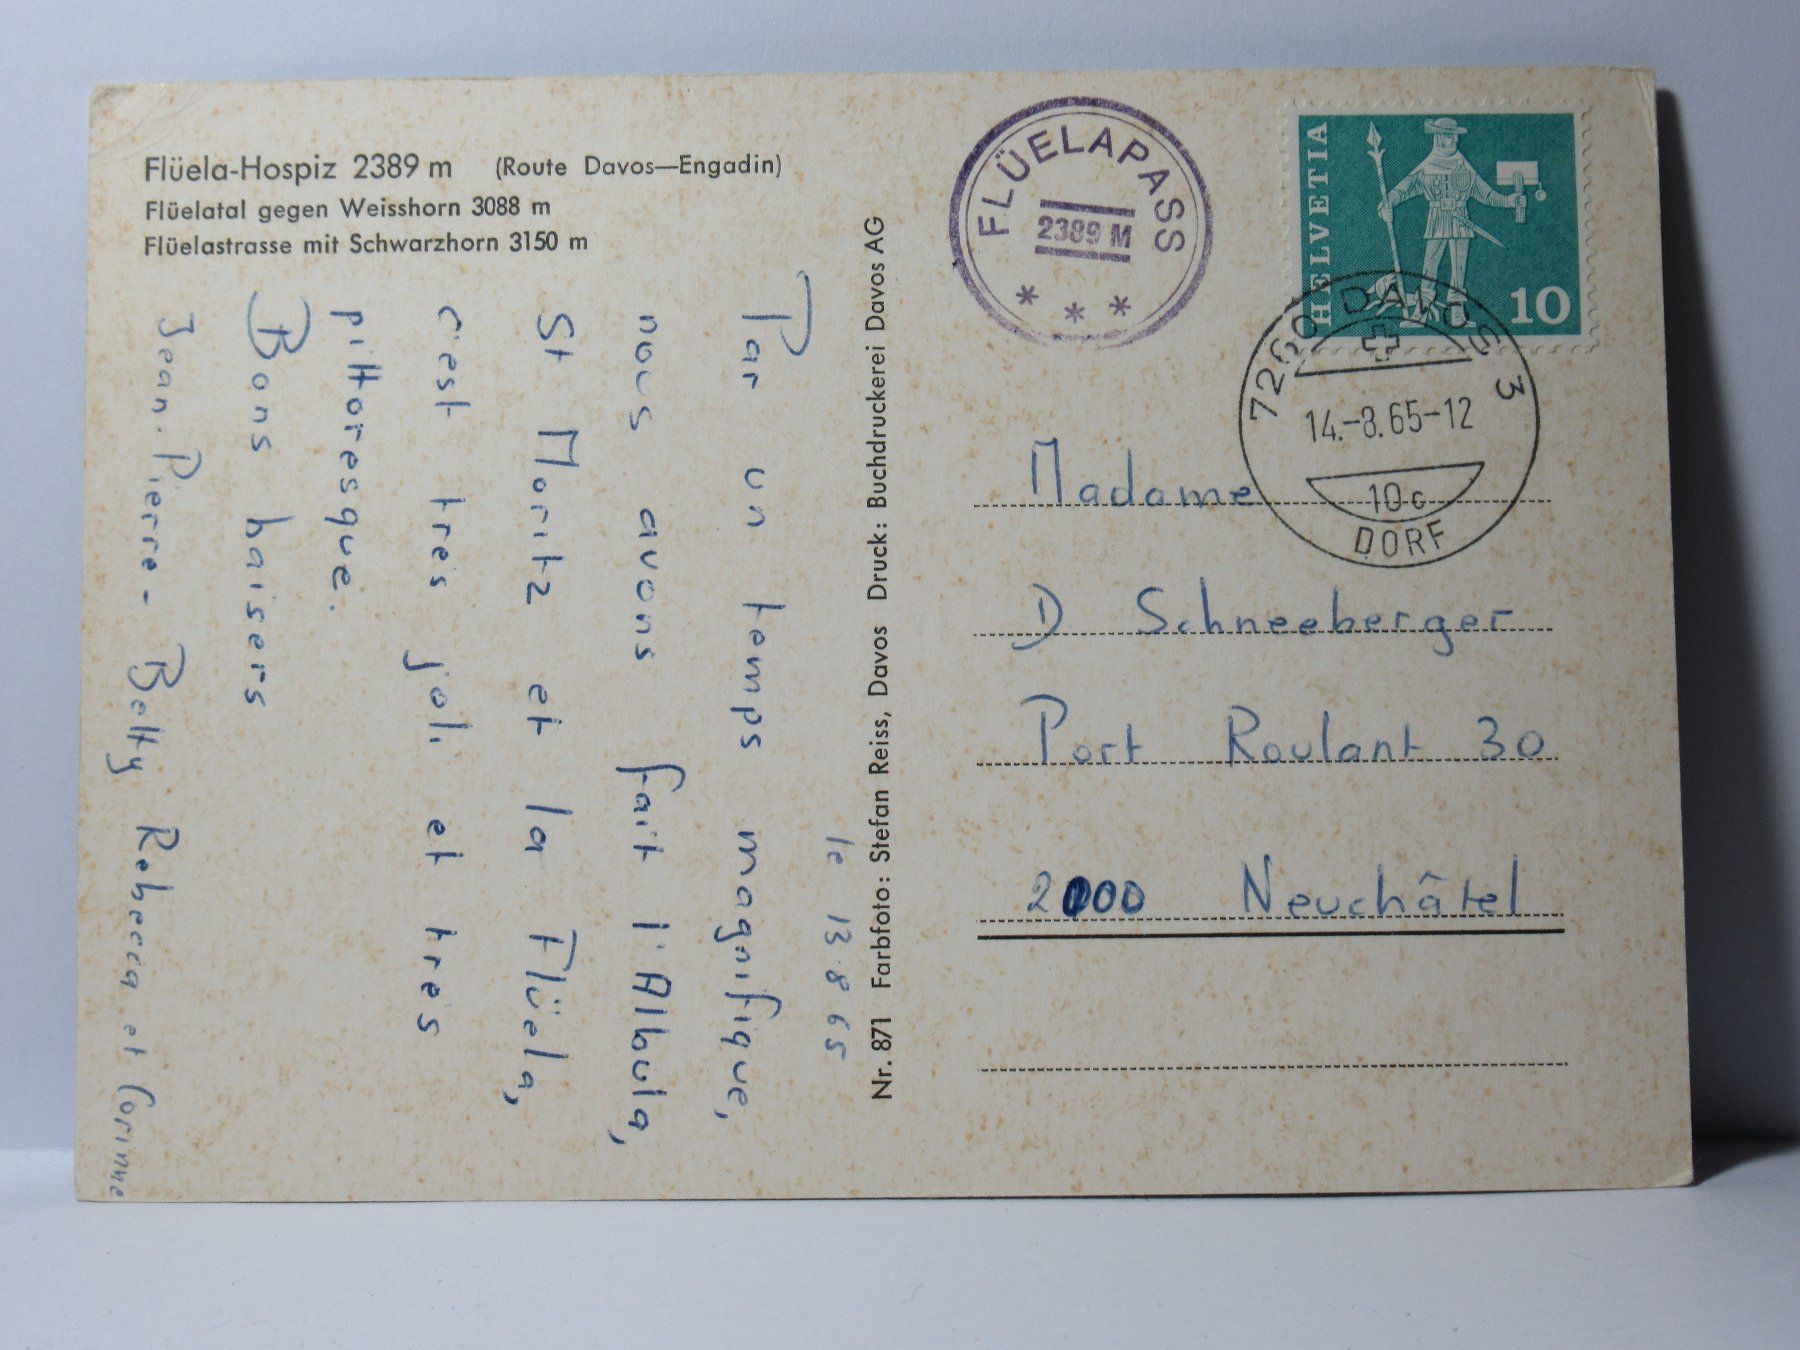 Flüela-Hospiz 2389 m (Route Davos—Engadin)
Flüelatal gegen Weisshorn 3088 m
Flüelastrasse mit Schwarzhorn 3150 m
le 13.8 65
Par un temps magnifique,
nous avons fait l'Albula,
St Moritz et la Flüela,
c'est très joli et très
pittoresque.
Bons baisers
Jean.Pierre - Betty Rebecca et Corinne
Nr. 871 Farbfoto: Stefan Reiss, Davos Druck: Buchdruckerei Davos AG
FLÜELAPASS
2389 M
* * *
HELVETIA
10
7260 DAVOS 3
14.-8.65-12
10c
DORF
Madame
D Schneeberger
Port Roulant 30
2000 Neuchâtel